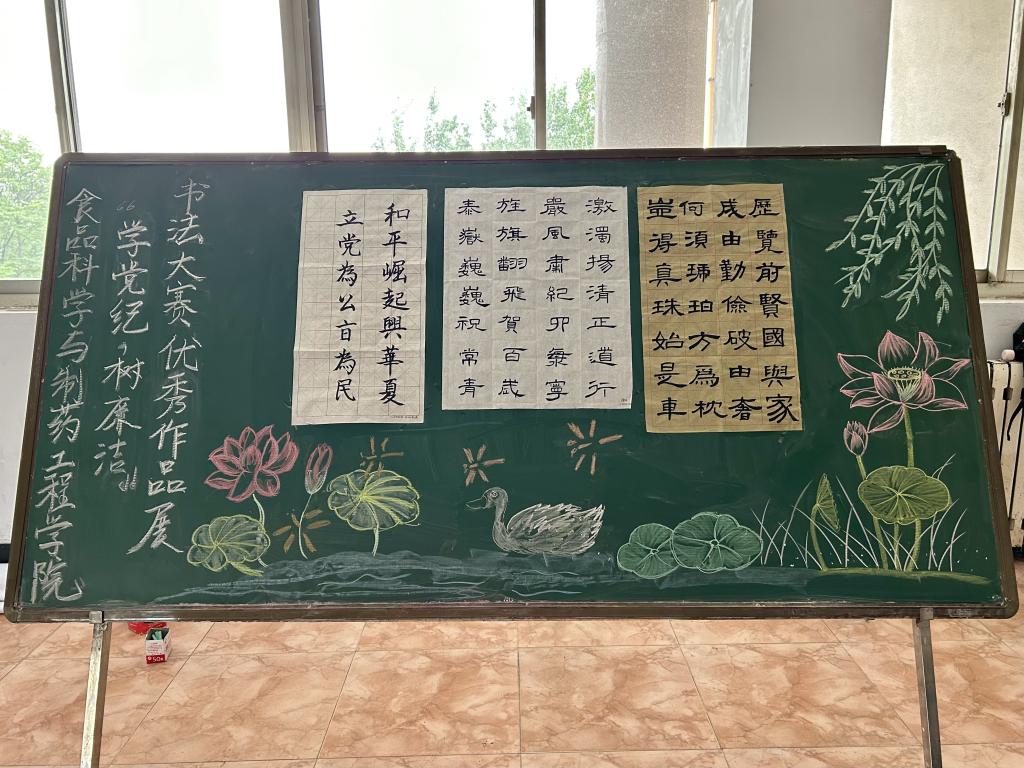 歷覽前賢國與家
成由勤儉破由奢
何須琥珀方爲枕
豈得真珠始是車
激濁揚清正道行
嚴風肅紀寧
旌旗翻飛賀百歲
泰嶽巍巍祝常青
和平崛起興華夏
立党為公為民
书法大赛优秀作品展
“学党纪,树廉洁”
食品科学与制药工程学院